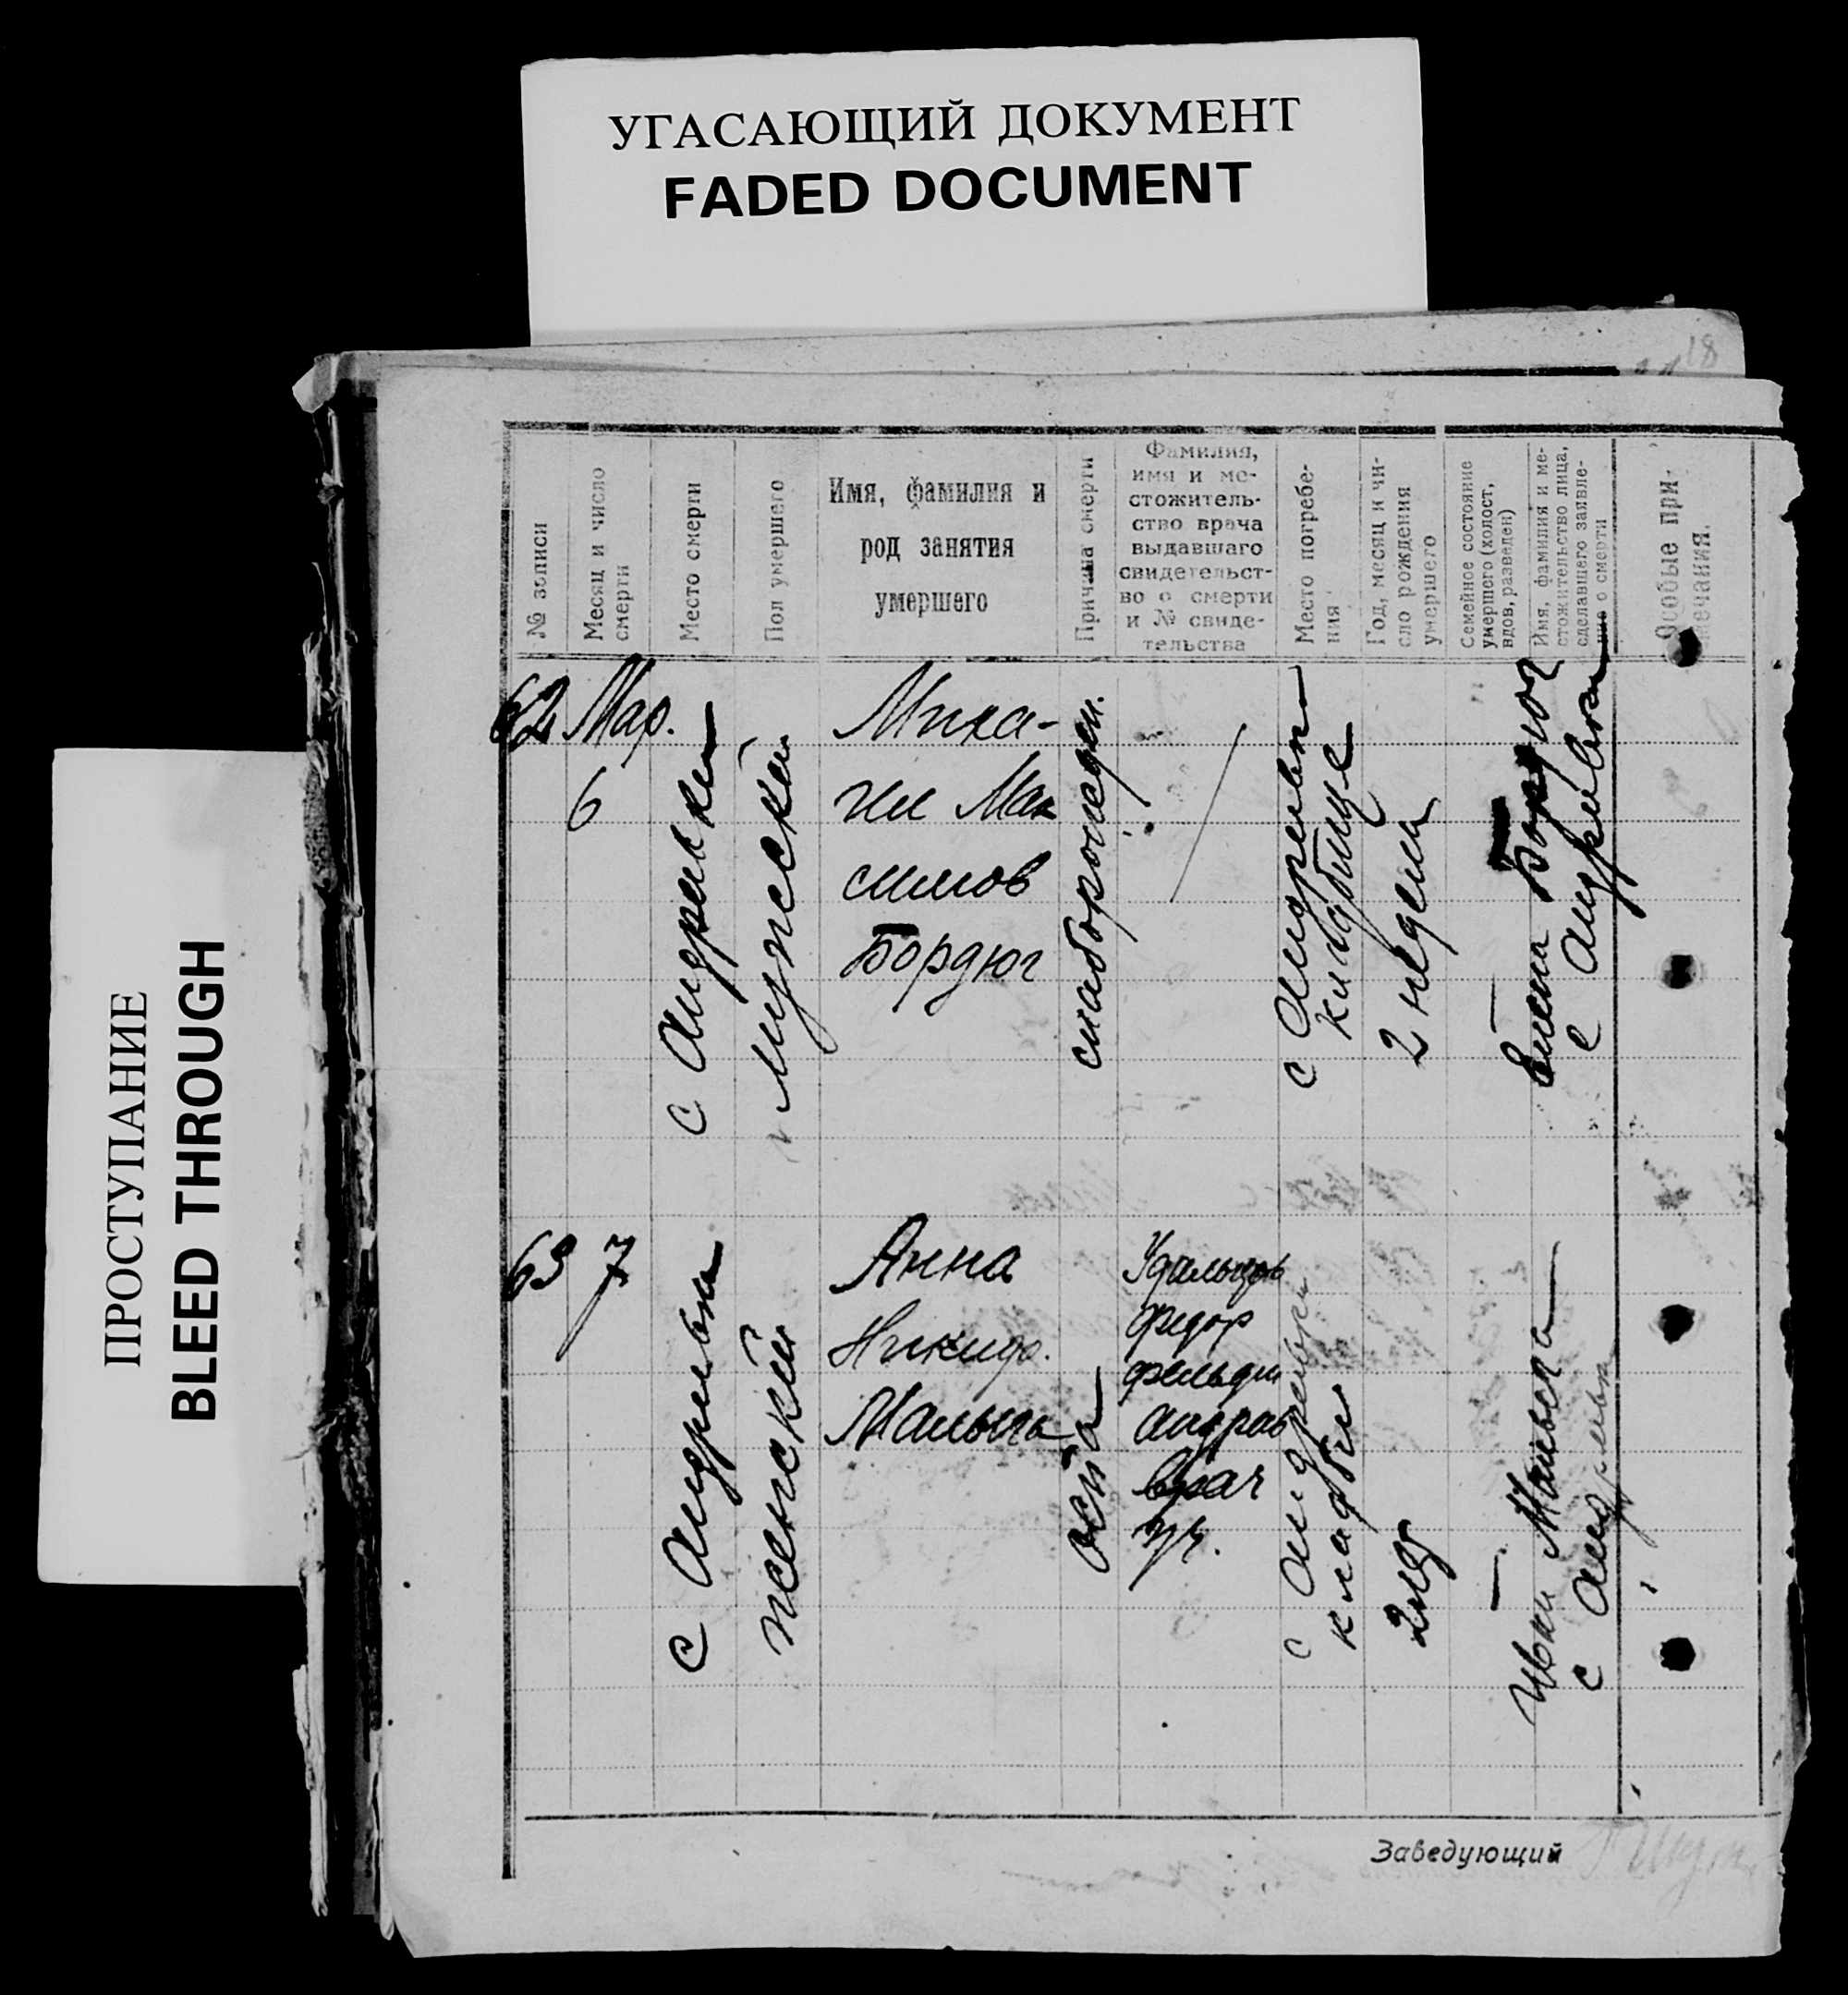 УГАСАЮЩИЙ ДОКУМЕНТ
FADED DOCUMENT
ПРОСТУПАНИЕ
BLEED THROUGH
18
№ записи
Месяц и число
смерти
Место смерти
Пол умершего
Имя, фамилия и
род занятия
умершего
Причина смерти
Фамилия,
имя и ме-
стожитель-
ство врача
выдавшаго
свидетельст-
во о смерти
и № свиде-
тельства
Место погребе-
ния
Год, месяц и чи-
сло рождения
умершего
Семейное состояние
умершего (холост,
вдов, разведен)
Имя, фамилия и ме-
стожительство лица,
сделавшего заявле-
ние о смерти
Особые при-
мечания.
62
Мар.
6
с
мужской
Миха-
ил Мак
симов
Бордюг
слаборожден.
с
кладбище
2 недели
Бордюг
с
63
7
с Андреевка
женский
Анна
Никифо.
Малыга
оспа
Удальцов
Федор
фельдш
врач
уч.
с
кладби
Иван Малыга
с
Заведующий